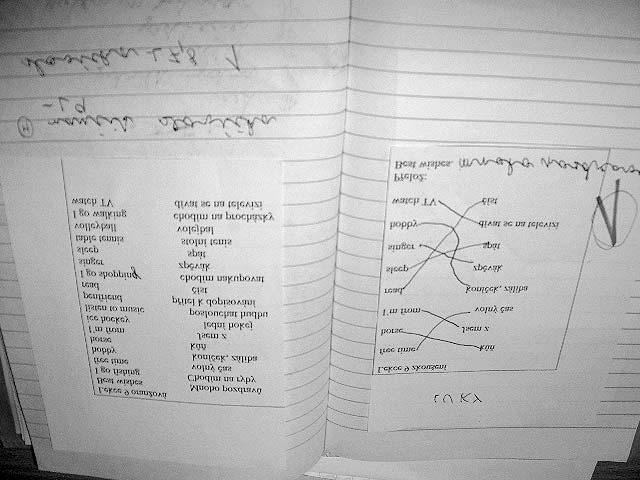 Lekce 9 oranžová
Best wishes Mnoho pozdravů
I go fishing Chodím na ryby
free time volný čas
hobby koníček, záliba
horse kůň
I'm from Jsem z
ice hockey lední hokej
listen to music poslouchat hudbu
penfriend přítel k dopisování
read číst
I go shopping chodím nakupovat
singer zpěvák
sleep spát
table tennis stolní tenis
volleyball volejbal
I go walking chodím na procházky
watch TV dívat se na televizi
slovíčka
- L9
slovíčka L 7,8 1
LUKY
Lekce 9 zkoušení
free time kůň
horse Jsem z
I'm from volný čas
read koníček, záliba
sleep zpěvák
singer spát
hobby dívat se na televizi
watch TV číst
Přelož:
Best wishes. mnoho pozdravů